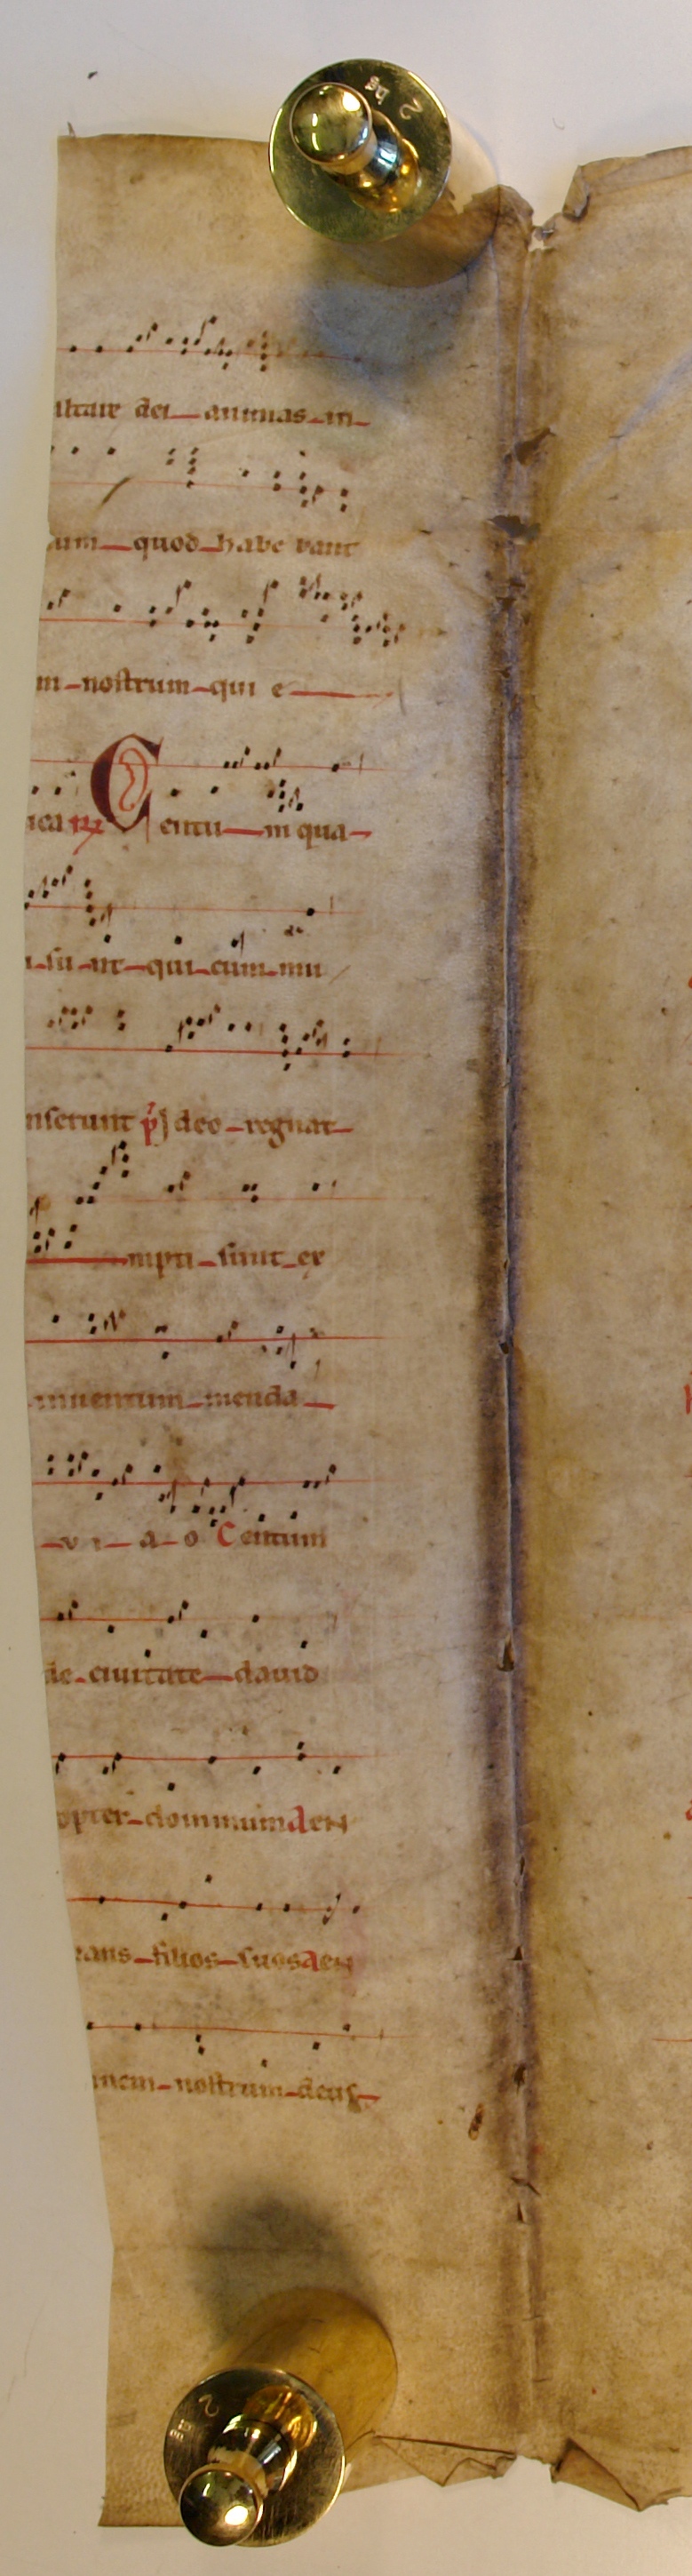 altare dei animas in
um quod habe bant
m nostrum qui e
Centu m qua
su nt qui cum mu
nserunt deo regnat
mpti sunt ex
inuentum menda
v i a o Centum
de ciuitate dauid
opter dominum aeu
rans filios suos aeu
inem nostrum deus